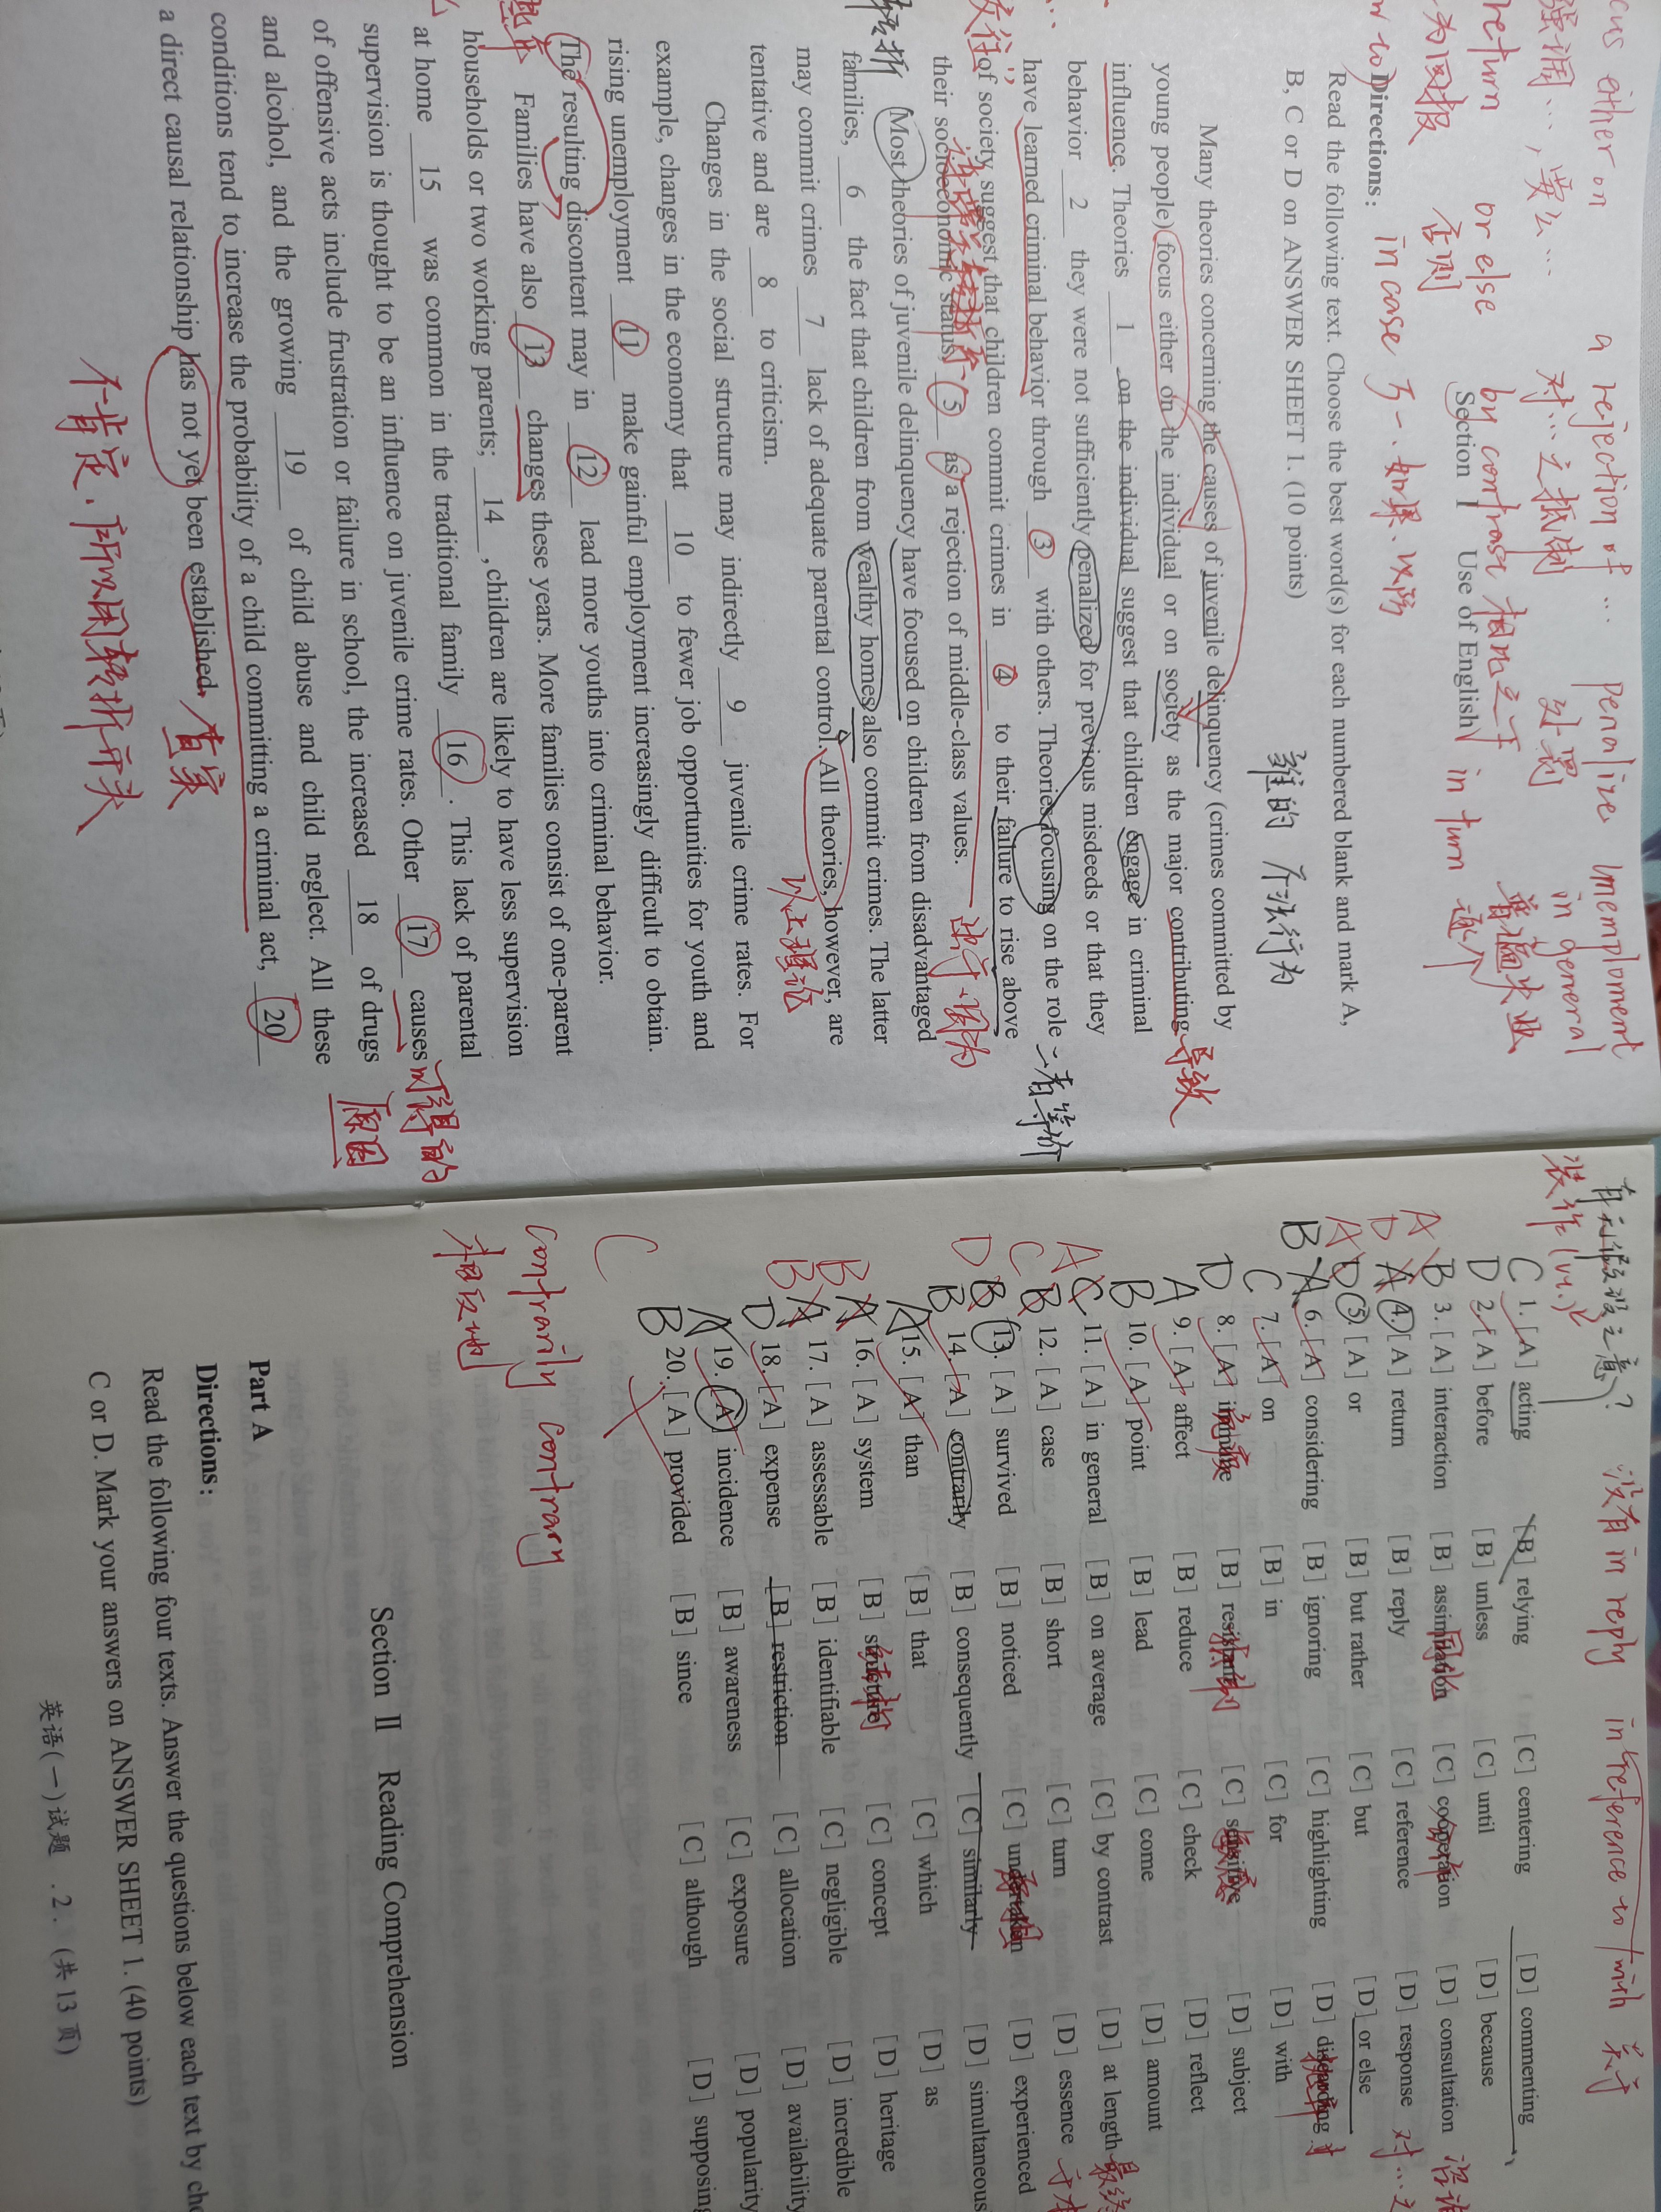 cus either on a rejection of … penalize unemployment
强调…, 要么… 对…之抵制 处罚 in general
return or else by contrast 相比之下 in turn 普遍失业
为回报 否则 逐个
in case 万一、如果、以防
Section Ⅰ Use of English
Directions:
Read the following text. Choose the best word(s) for each numbered blank and mark A,
B, C or D on ANSWER SHEET 1. (10 points)
罪的 不法行为
Many theories concerning the causes of juvenile delinquency (crimes committed by
young people) focus either on the individual or on society as the major contributing 导致
influence. Theories 1 on the individual suggest that children engage in criminal
behavior 2 they were not sufficiently penalized for previous misdeeds or that they
have learned criminal behavior through 3 with others. Theories focusing on the role 二者等价
of society suggest that children commit crimes in 4 to their failure to rise above
their socioeconomic status, 5 as a rejection of middle-class values. 出于、因为
Most theories of juvenile delinquency have focused on children from disadvantaged
families, 6 the fact that children from wealthy homes also commit crimes. The latter
may commit crimes 7 lack of adequate parental control. All theories, however, are
tentative and are 8 to criticism. 以上理论
Changes in the social structure may indirectly 9 juvenile crime rates. For
example, changes in the economy that 10 to fewer job opportunities for youth and
rising unemployment 11 make gainful employment increasingly difficult to obtain.
The resulting discontent may in 12 lead more youths into criminal behavior.
Families have also 13 changes these years. More families consist of one-parent
households or two working parents; 14 , children are likely to have less supervision
at home 15 was common in the traditional family 16 . This lack of parental
supervision is thought to be an influence on juvenile crime rates. Other 17 causes 可得的
of offensive acts include frustration or failure in school, the increased 18 of drugs 原因
and alcohol, and the growing 19 of child abuse and child neglect. All these
conditions tend to increase the probability of a child committing a criminal act, 20
a direct causal relationship has not yet been established. 查实
不肯定，所以用转折开头
没有 in reply in reference to / with 关于
装作 (vi.)
C 1. [A] acting [B] relying [C] centering [D] commenting
D 2. [A] before [B] unless [C] until [D] because
A B 3. [A] interaction [B] assimilation 同化 [C] cooperation 合作 [D] consultation
D A 4. [A] return [B] reply [C] reference [D] response 对…之
A D 5. [A] or [B] but rather [C] but [D] or else
B A 6. [A] considering [B] ignoring [C] highlighting [D] discarding
C 7. [A] on [B] in [C] for [D] with
D 8. [A] immune 免疫 [B] resistant 抵制 [C] sensitive 敏感 [D] subject
A 9. [A] affect [B] reduce [C] check [D] reflect
B 10. [A] point [B] lead [C] come [D] amount
A C 11. [A] in general [B] on average [C] by contrast [D] at length 最终
C B 12. [A] case [B] short [C] turn [D] essence
D B 13. [A] survived [B] noticed [C] undertaken [D] experienced
B 14. [A] contrarily [B] consequently [C] similarly [D] simultaneous
A 15. [A] than [B] that [C] which [D] as
B A 16. [A] system [B] structure 结构 [C] concept [D] heritage
B A 17. [A] assessable [B] identifiable [C] negligible [D] incredible
D 18. [A] expense [B] restriction [C] allocation [D] availability
A 19. [A] incidence [B] awareness [C] exposure [D] popularity
C B 20. [A] provided [B] since [C] although [D] supposing
contrarily contrary
相反地
Section Ⅱ Reading Comprehension
Part A
Directions:
Read the following four texts. Answer the questions below each text by cho
C or D. Mark your answers on ANSWER SHEET 1. (40 points)
英语(一)试题 .2. (共13页)